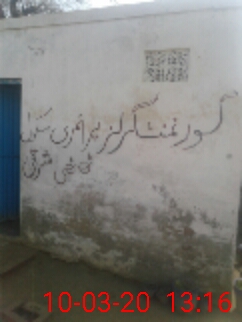 گورنمنٹ گرلز پرائمری سکول
شرقی
10-03-20 13:16